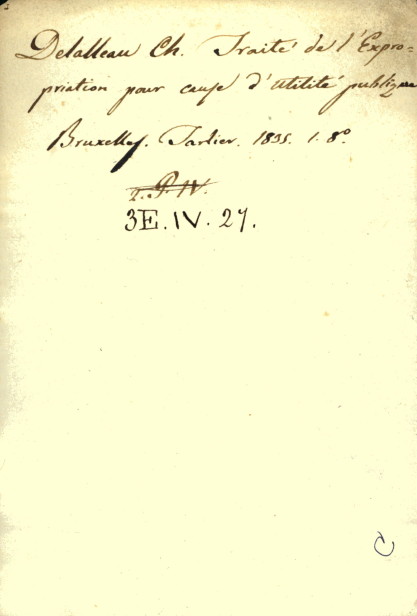 Delalleau Ch. Traité de l'Expro=
priation pour cause d'utilité publique
Bruxelles. Tarlier. 1835. 1. 8º.
3E. IV. 27.
C